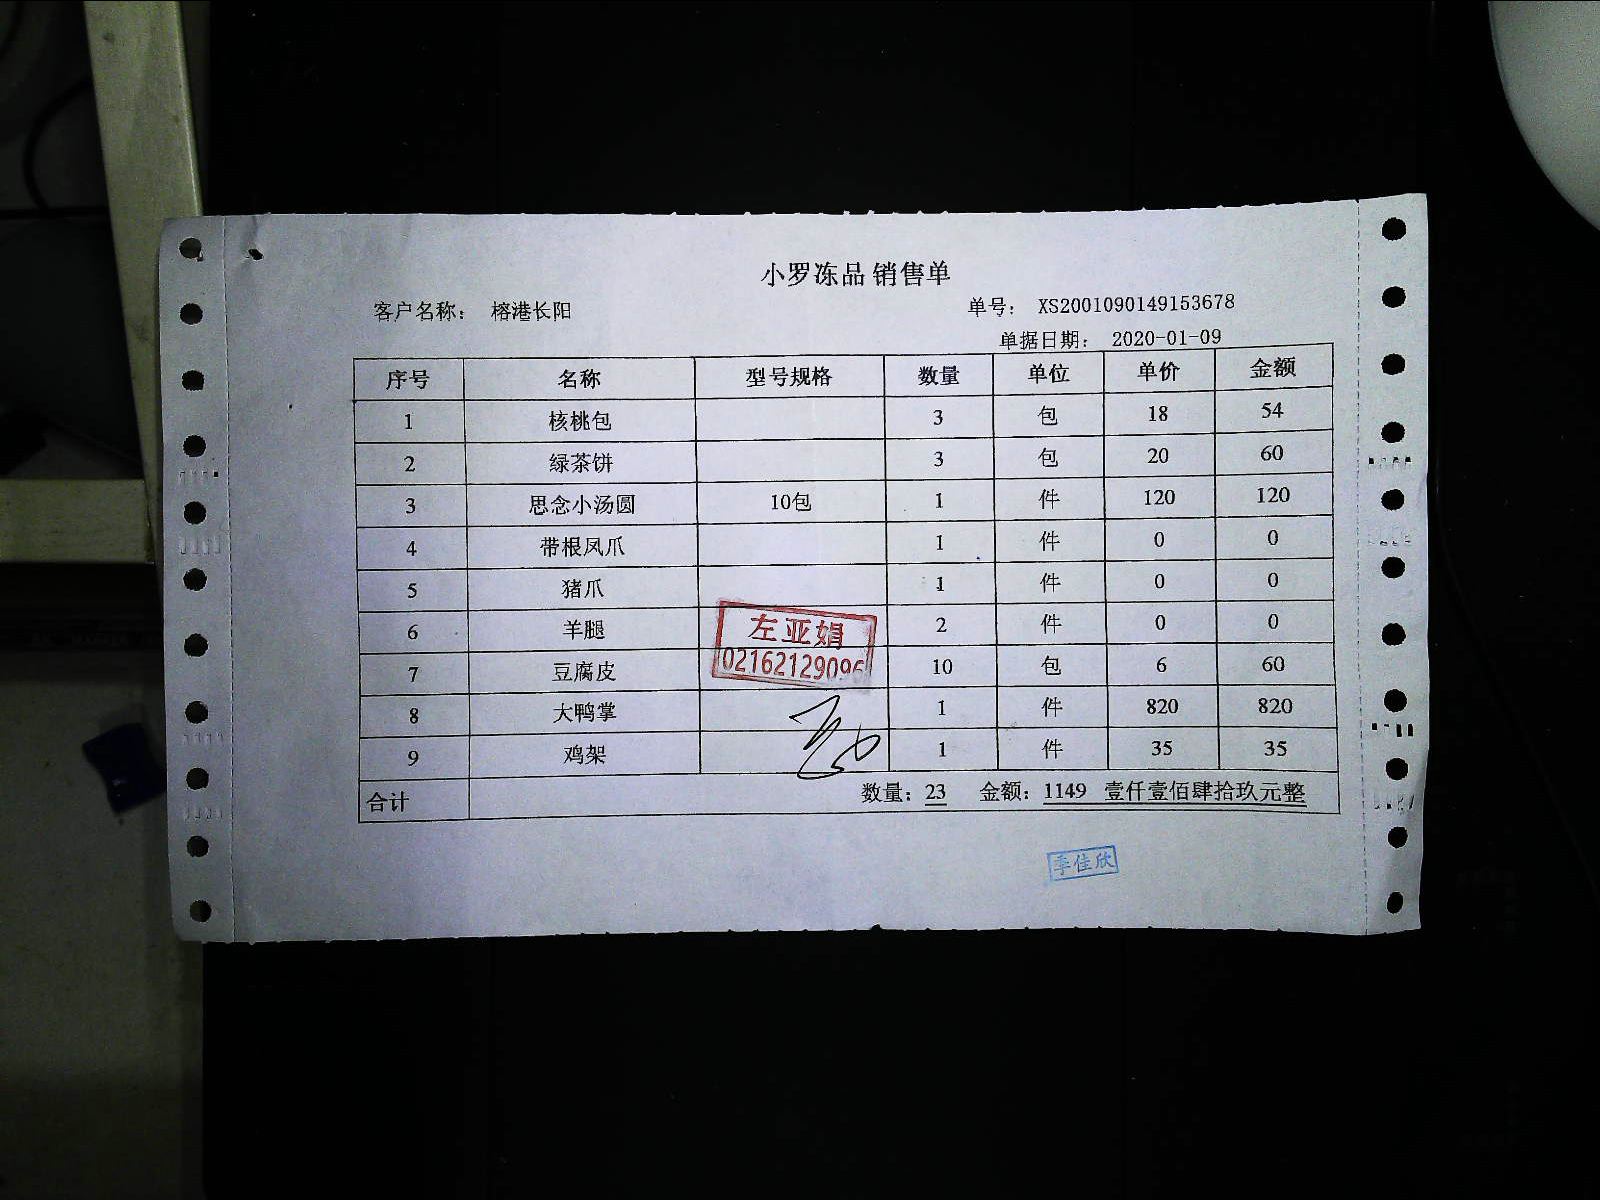 小罗冻品 销售单
客户名称： 榕港长阳 单号： XS2001090149153678
单据日期： 2020-01-09
序号 名称 型号规格 数量 单位 单价 金额
1 核桃包 3 包 18 54
2 绿茶饼 3 包 20 60
3 思念小汤圆 10包 1 件 120 120
4 带根凤爪 1 件 0 0
5 猪爪 1 件 0 0
6 羊腿 2 件 0 0
左亚娟
02162129096
7 豆腐皮 10 包 6 60
8 大鸭掌 1 件 820 820
9 鸡架 1 件 35 35
合计 数量：23 金额：1149 壹仟壹佰肆拾玖元整
季佳欣